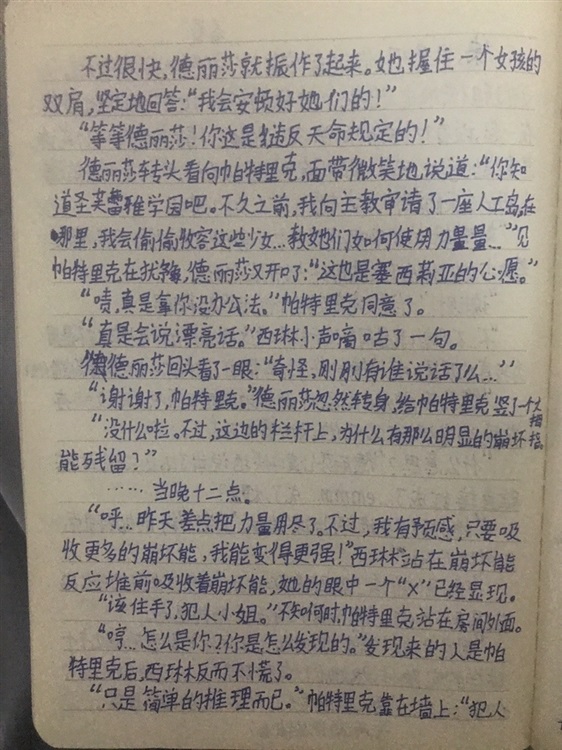 不过很快，德丽莎就振作了起来。她握住一个女孩的
双肩，坚定地回答：“我会安顿好她们的！”
“等等德丽莎！你这是违反天命规定的！”
德丽莎转头看向帕特里克，面带微笑地说道：“你知
道圣芙蕾雅学园吧。不久之前，我向主教审请了一座人工岛，在
那里，我会偷偷收容这些少女…教她们如何使用力量量…”见
帕特里克在犹豫，德丽莎又开口了：“这也是塞西莉亚的心愿。”
“啧，真是拿你没办法。”帕特里克同意了。
“真是会说漂亮话。”西琳小声嘀咕了一句。
德丽莎回头看了一眼：“奇怪，刚刚有谁说话了么…”
“谢谢了，帕特里克。”德丽莎忽然转身，给帕特里克竖了一个大拇指。
“没什么啦。不过，这边的栏杆上，为什么有那么明显的崩坏
能残留？”
……当晚十二点。
“呼…昨天差点把力量用尽了。不过，我有预感，只要吸
收更多的崩坏能，我能变得更强！”西琳站在崩坏能
反应堆前吸收着崩坏能，她的眼中一个“X”已经显现。
“该住手了，犯人小姐。”不知何时，帕特里克站在房间外面。
“哼…怎么是你？你是怎么发现的。”发现来的人是帕
特里克后，西琳反而不慌了。
“只是简单的推理而已。”帕特里克靠在墙上：“犯人